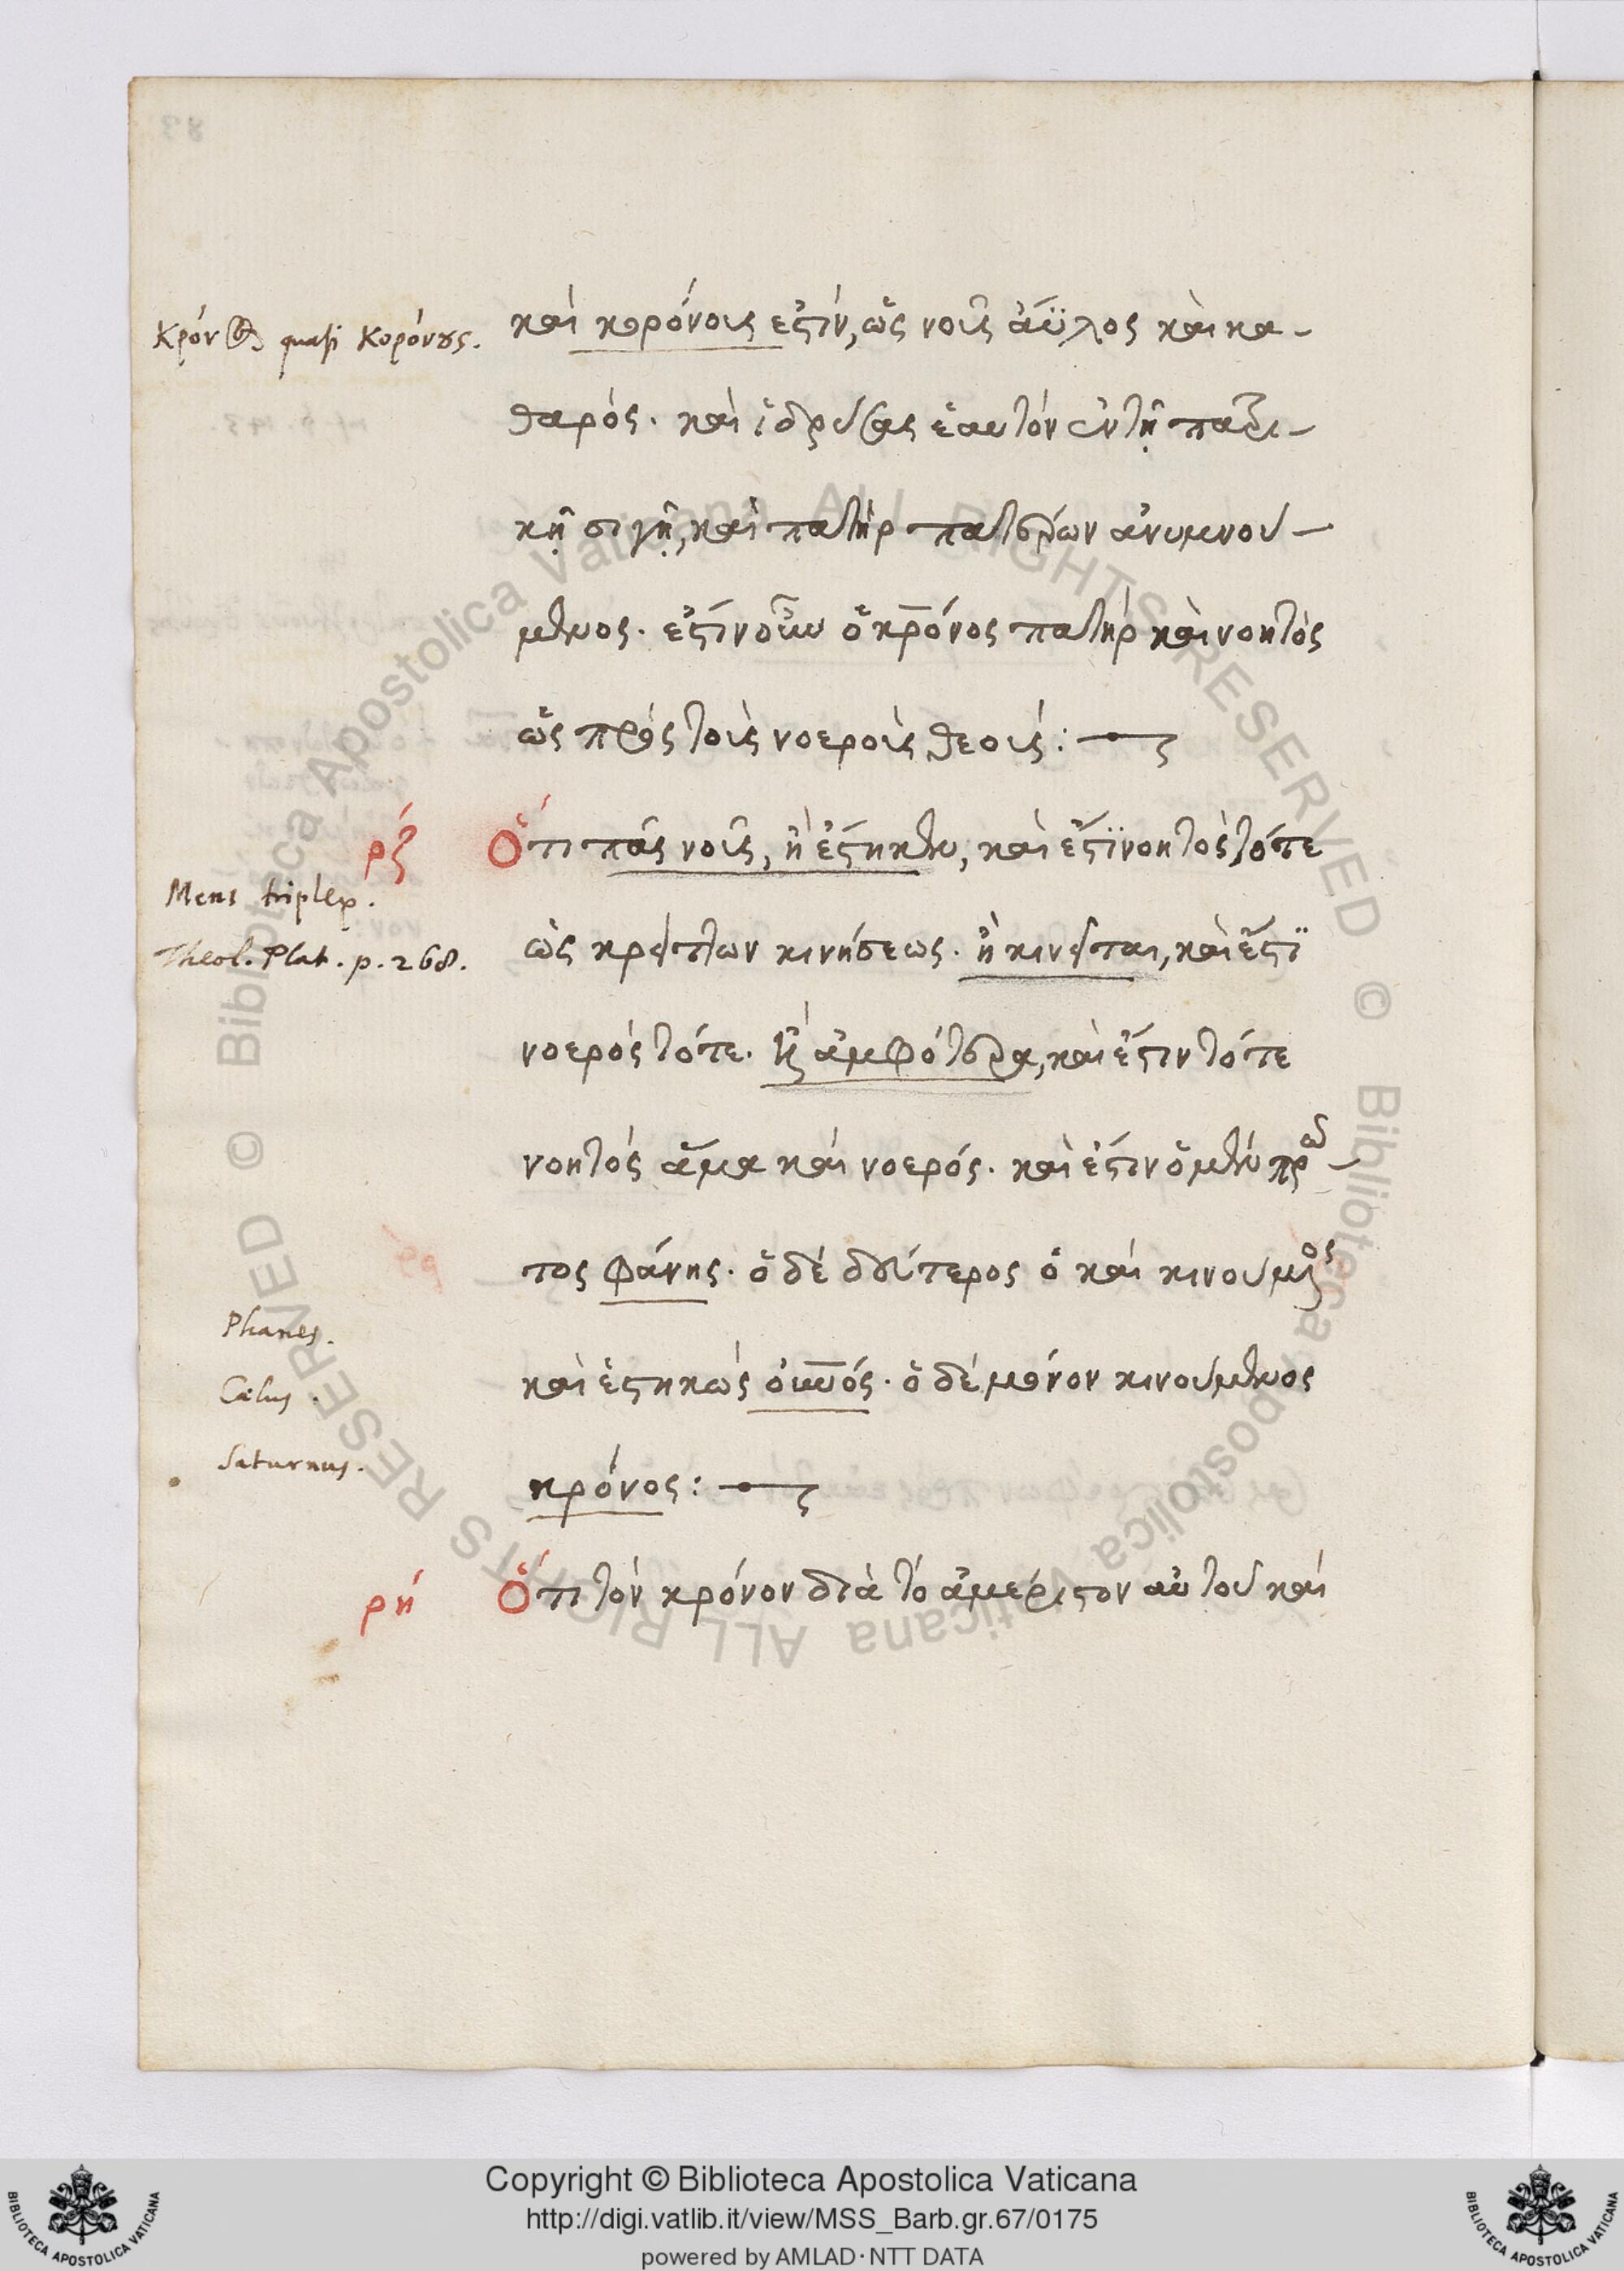 Κρόνος quasi Κορόνους.
καὶ κορόνους ἐστὶν, ὡς νοῦς ἄϋλος καὶ κα-
θαρός. καὶ ἱδρύσας ἑαυτὸν ἐν τῇ πατρι-
κῇ σιγῇ, καὶ πατὴρ πατέρων ἀνυμνού-
μενος. ἔστιν οὖν ὁ κρόνος πατὴρ καὶ νοητὸς
ὡς πρὸς τοὺς νοεροὺς θεούς:
ρζ Ὅτι πᾶς νοῦς, ἢ ἕστηκεν, καὶ ἔστι νοητὸς τότε
Mens triplex.
Theol. Plat. p. 268.
ὡς κρείττων κινήσεως. ἢ κινεῖται, καὶ ἔστι
νοερὸς τότε. ἢ ἀμφότερα, καὶ ἔστιν τότε
νοητὸς ἅμα καὶ νοερός. καὶ ἔστιν ὁ μὲν πρῶ-
τος φάνης. ὁ δὲ δεύτερος ὁ καὶ κινούμενος
Phanes.
καὶ ἑστηκὼς οὐνός. ὁ δὲ μόνον κινούμενος
Cælus.
κρόνος:
Saturnus.
ρη Ὅτι τὸν κρόνον διὰ τὸ ἀμέριστον αὐτοῦ καὶ
Copyright © Biblioteca Apostolica Vaticana
http://digi.vatlib.it/view/MSS_Barb.gr.67/0175
powered by AMLAD·NTT DATA
BIBLIOTECA APOSTOLICA VATICANA
BIBLIOTECA APOSTOLICA VATICANA
© Biblioteca Apostolica Vaticana ALL RIGHTS RESERVED
© Biblioteca Apostolica Vaticana ALL RIGHTS RESERVED